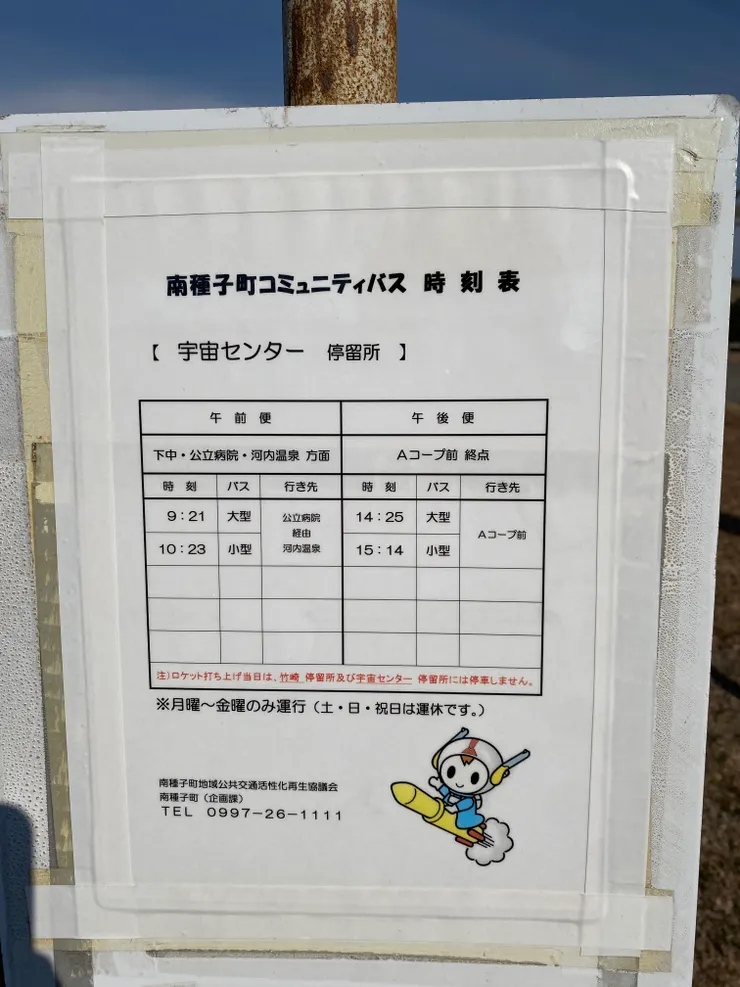 南種子町コミュニティバス 時 刻 表
【 宇宙センター 停留所 】
午 前 便 午 後 便
下中・公立病院・河内温泉 方面 Aコープ前 終点
時 刻 バス 行き先 時 刻 バス 行き先
9：21 大型 公立病院 経由 河内温泉 14：25 大型 Aコープ前
10：23 小型 15：14 小型
注）ロケット打ち上げ当日は、竹崎 停留所及び宇宙センター 停留所には停車しません。
※月曜～金曜のみ運行（土・日・祝日は運休です。）
南種子町地域公共交通活性化再生協議会
南種子町（企画課）
TEL 0997-26-1111